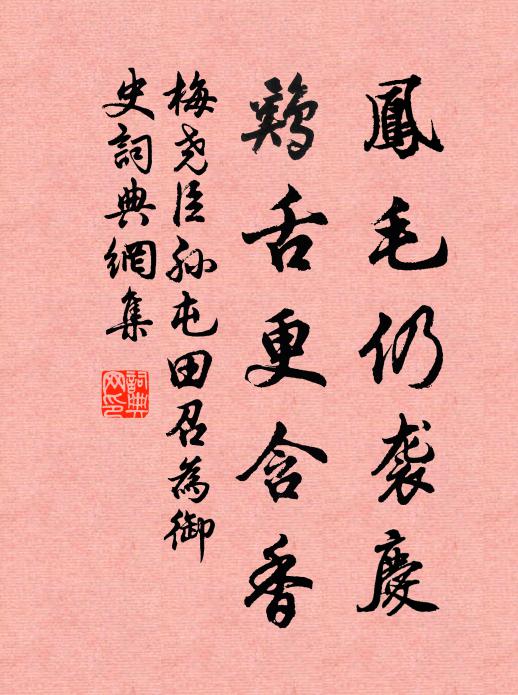 鳳毛仍袭慶
鷄舌更含香
梅尧臣孙屯田召為御
史詞典網集
詞典
网印